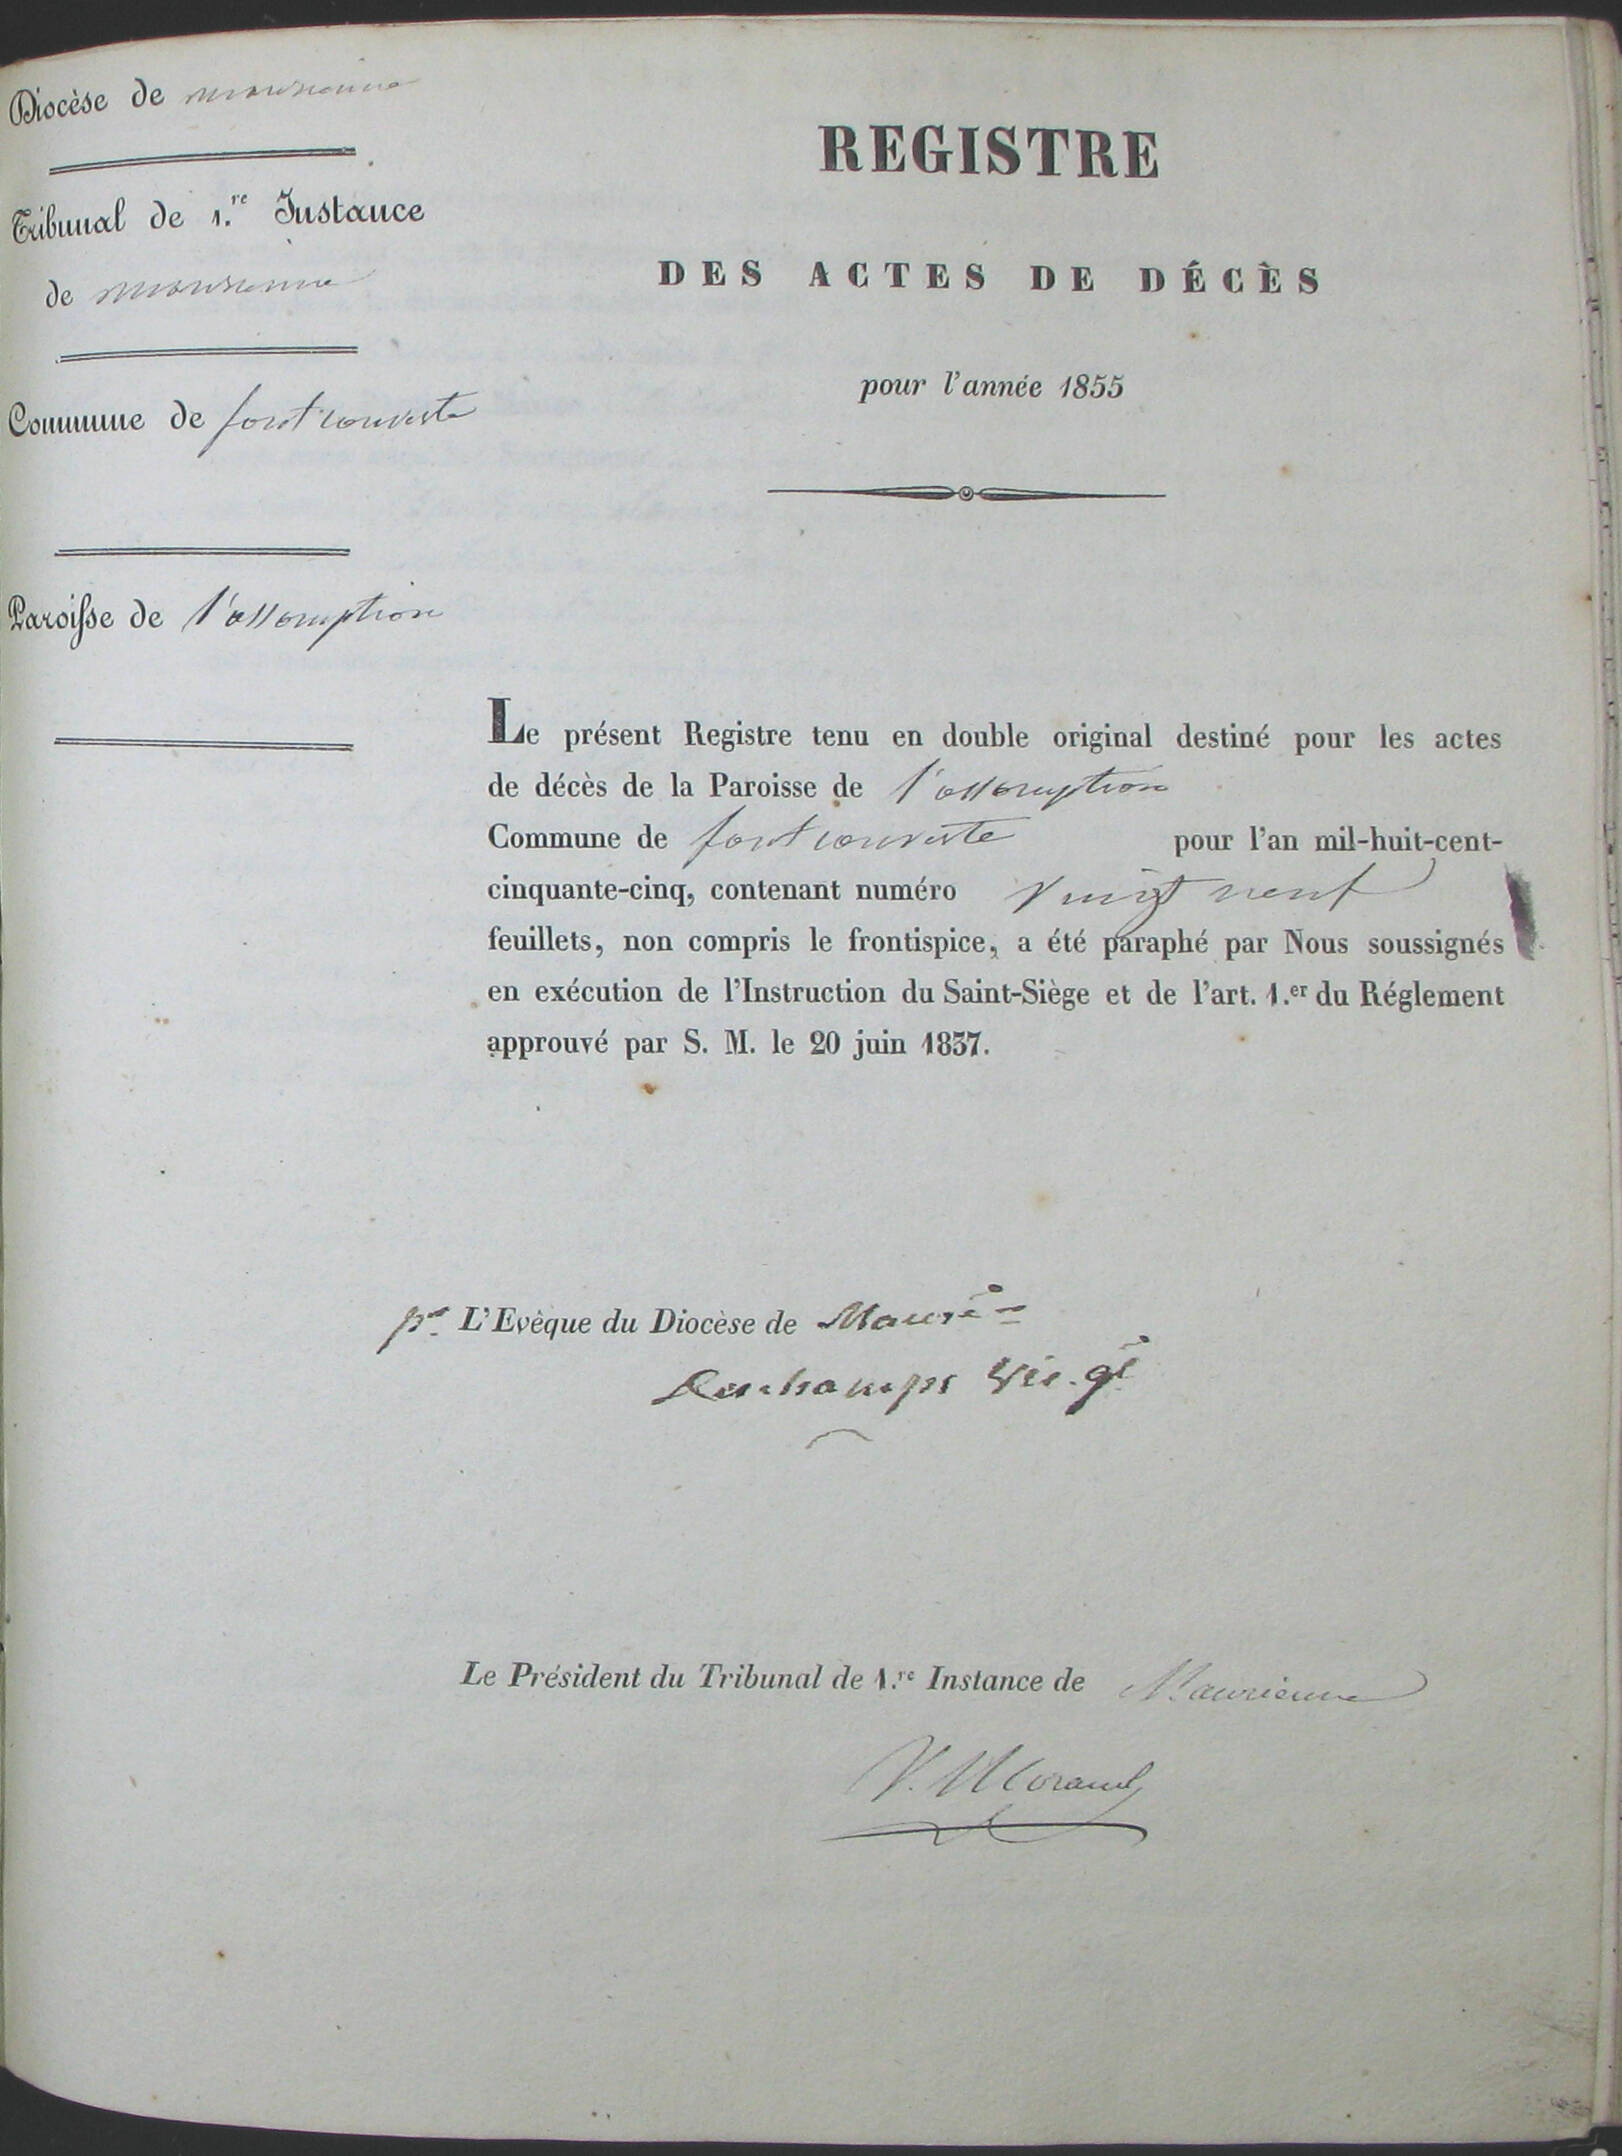 Diocèse de maurienne
Tribunal de 1.re Instance
de maurienne
Commune de fontcouverte
Paroisse de l'assomption
REGISTRE
DES ACTES DE DÉCÈS
pour l'année 1855
Le présent Registre tenu en double original destiné pour les actes
de décès de la Paroisse de l'assomption
Commune de fontcouverte pour l'an mil-huit-cent-
cinquante-cinq, contenant numéro vingt neuf
feuillets, non compris le frontispice, a été paraphé par Nous soussignés
en exécution de l'Instruction du Saint-Siège et de l'art. 1.er du Réglement
approuvé par S. M. le 20 juin 1837.
pr L'Evèque du Diocèse de Maurne
Deschamps Vic. gl
Le Président du Tribunal de 1.re Instance de Maurienne
V. Morand